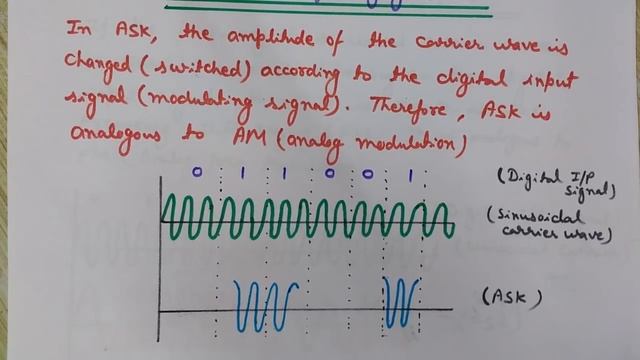 In ASK, the amplitude of the carrier wave is
changed (switched) according to the digital input
signal (modulating signal). Therefore, ASK is
analogous to AM (analog modulation)
0 1 1 0 0 1
(Digital I/P
signal)
(Sinusoidal
carrier wave)
(ASK)